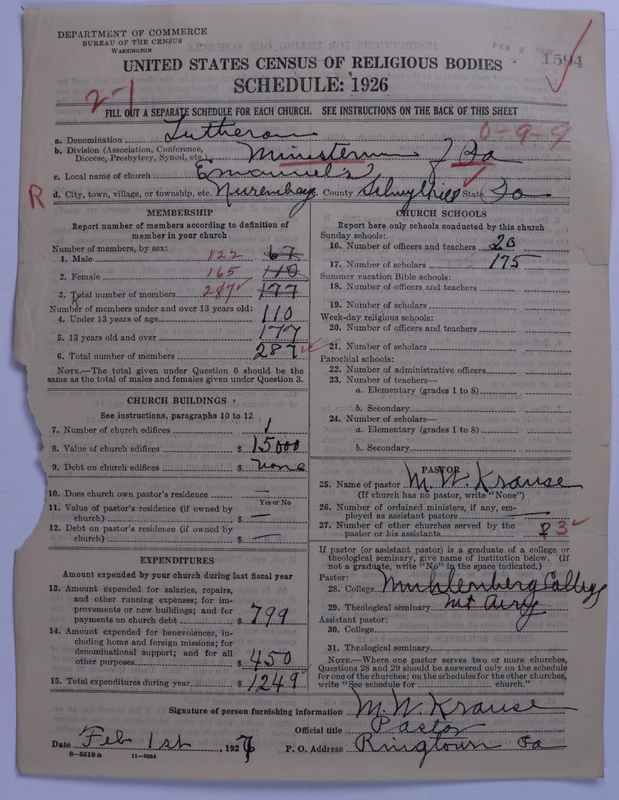 DEPARTMENT OF COMMERCE
BUREAU OF THE CENSUS
WASHINGTON
FEB 2
1594
UNITED STATES CENSUS OF RELIGIOUS BODIES
SCHEDULE: 1926
2-1
FILL OUT A SEPARATE SCHEDULE FOR EACH CHURCH. SEE INSTRUCTIONS ON THE BACK OF THIS SHEET
0-9-9
a. Denomination Lutheran
b. Division (Association, Conference, Diocese, Presbytery, Synod, etc.) Ministerium of Pa
c. Local name of church Emanuel's
R
d. City, town, village, or township, etc. Nuremberg County Schuylkill State Pa
MEMBERSHIP
Report number of members according to definition of member in your church
Number of members, by sex:
1. Male 122 67
2. Female 165 110
3. Total number of members 287 177
Number of members under and over 13 years old:
4. Under 13 years of age 110
5. 13 years old and over 177
6. Total number of members 287
NOTE.—The total given under Question 6 should be the same as the total of males and females given under Question 3.
CHURCH BUILDINGS
See instructions, paragraphs 10 to 12
7. Number of church edifices 1
8. Value of church edifices $ 15000
9. Debt on church edifices $ none
10. Does church own pastor's residence —
Yes or No
11. Value of pastor's residence (if owned by church) $ —
12. Debt on pastor's residence (if owned by church) $ —
EXPENDITURES
Amount expended by your church during last fiscal year
13. Amount expended for salaries, repairs, and other running expenses; for improvements or new buildings; and for payments on church debt $ 799
14. Amount expended for benevolences, including home and foreign missions; for denominational support; and for all other purposes $ 450
15. Total expenditures during year $ 1249
CHURCH SCHOOLS
Report here only schools conducted by this church
Sunday schools:
16. Number of officers and teachers 20
17. Number of scholars 175
Summer vacation Bible schools:
18. Number of officers and teachers
19. Number of scholars
Week-day religious schools:
20. Number of officers and teachers
21. Number of scholars
Parochial schools:
22. Number of administrative officers
23. Number of teachers—
a. Elementary (grades 1 to 8)
b. Secondary
24. Number of scholars—
a. Elementary (grades 1 to 8)
b. Secondary
PASTOR
25. Name of pastor M. W. Krause
(If church has no pastor, write "None")
26. Number of ordained ministers, if any, employed as assistant pastors —
27. Number of other churches served by the pastor or his assistants 3
If pastor (or assistant pastor) is a graduate of a college or theological seminary, give name of institution below. (If not a graduate, write "No" in the space indicated.)
Pastor:
28. College Muhlenberg College
29. Theological seminary Mt Airy
Assistant pastor:
30. College
31. Theological seminary
NOTE.—Where one pastor serves two or more churches, Questions 28 and 29 should be answered only on the schedule for one of the churches; on the schedules for the other churches, write "See schedule for church."
Signature of person furnishing information M. W. Krause
Official title Pastor
Date Feb 1st, 1927
P. O. Address Ringtown Pa
8—5518a 11—9054